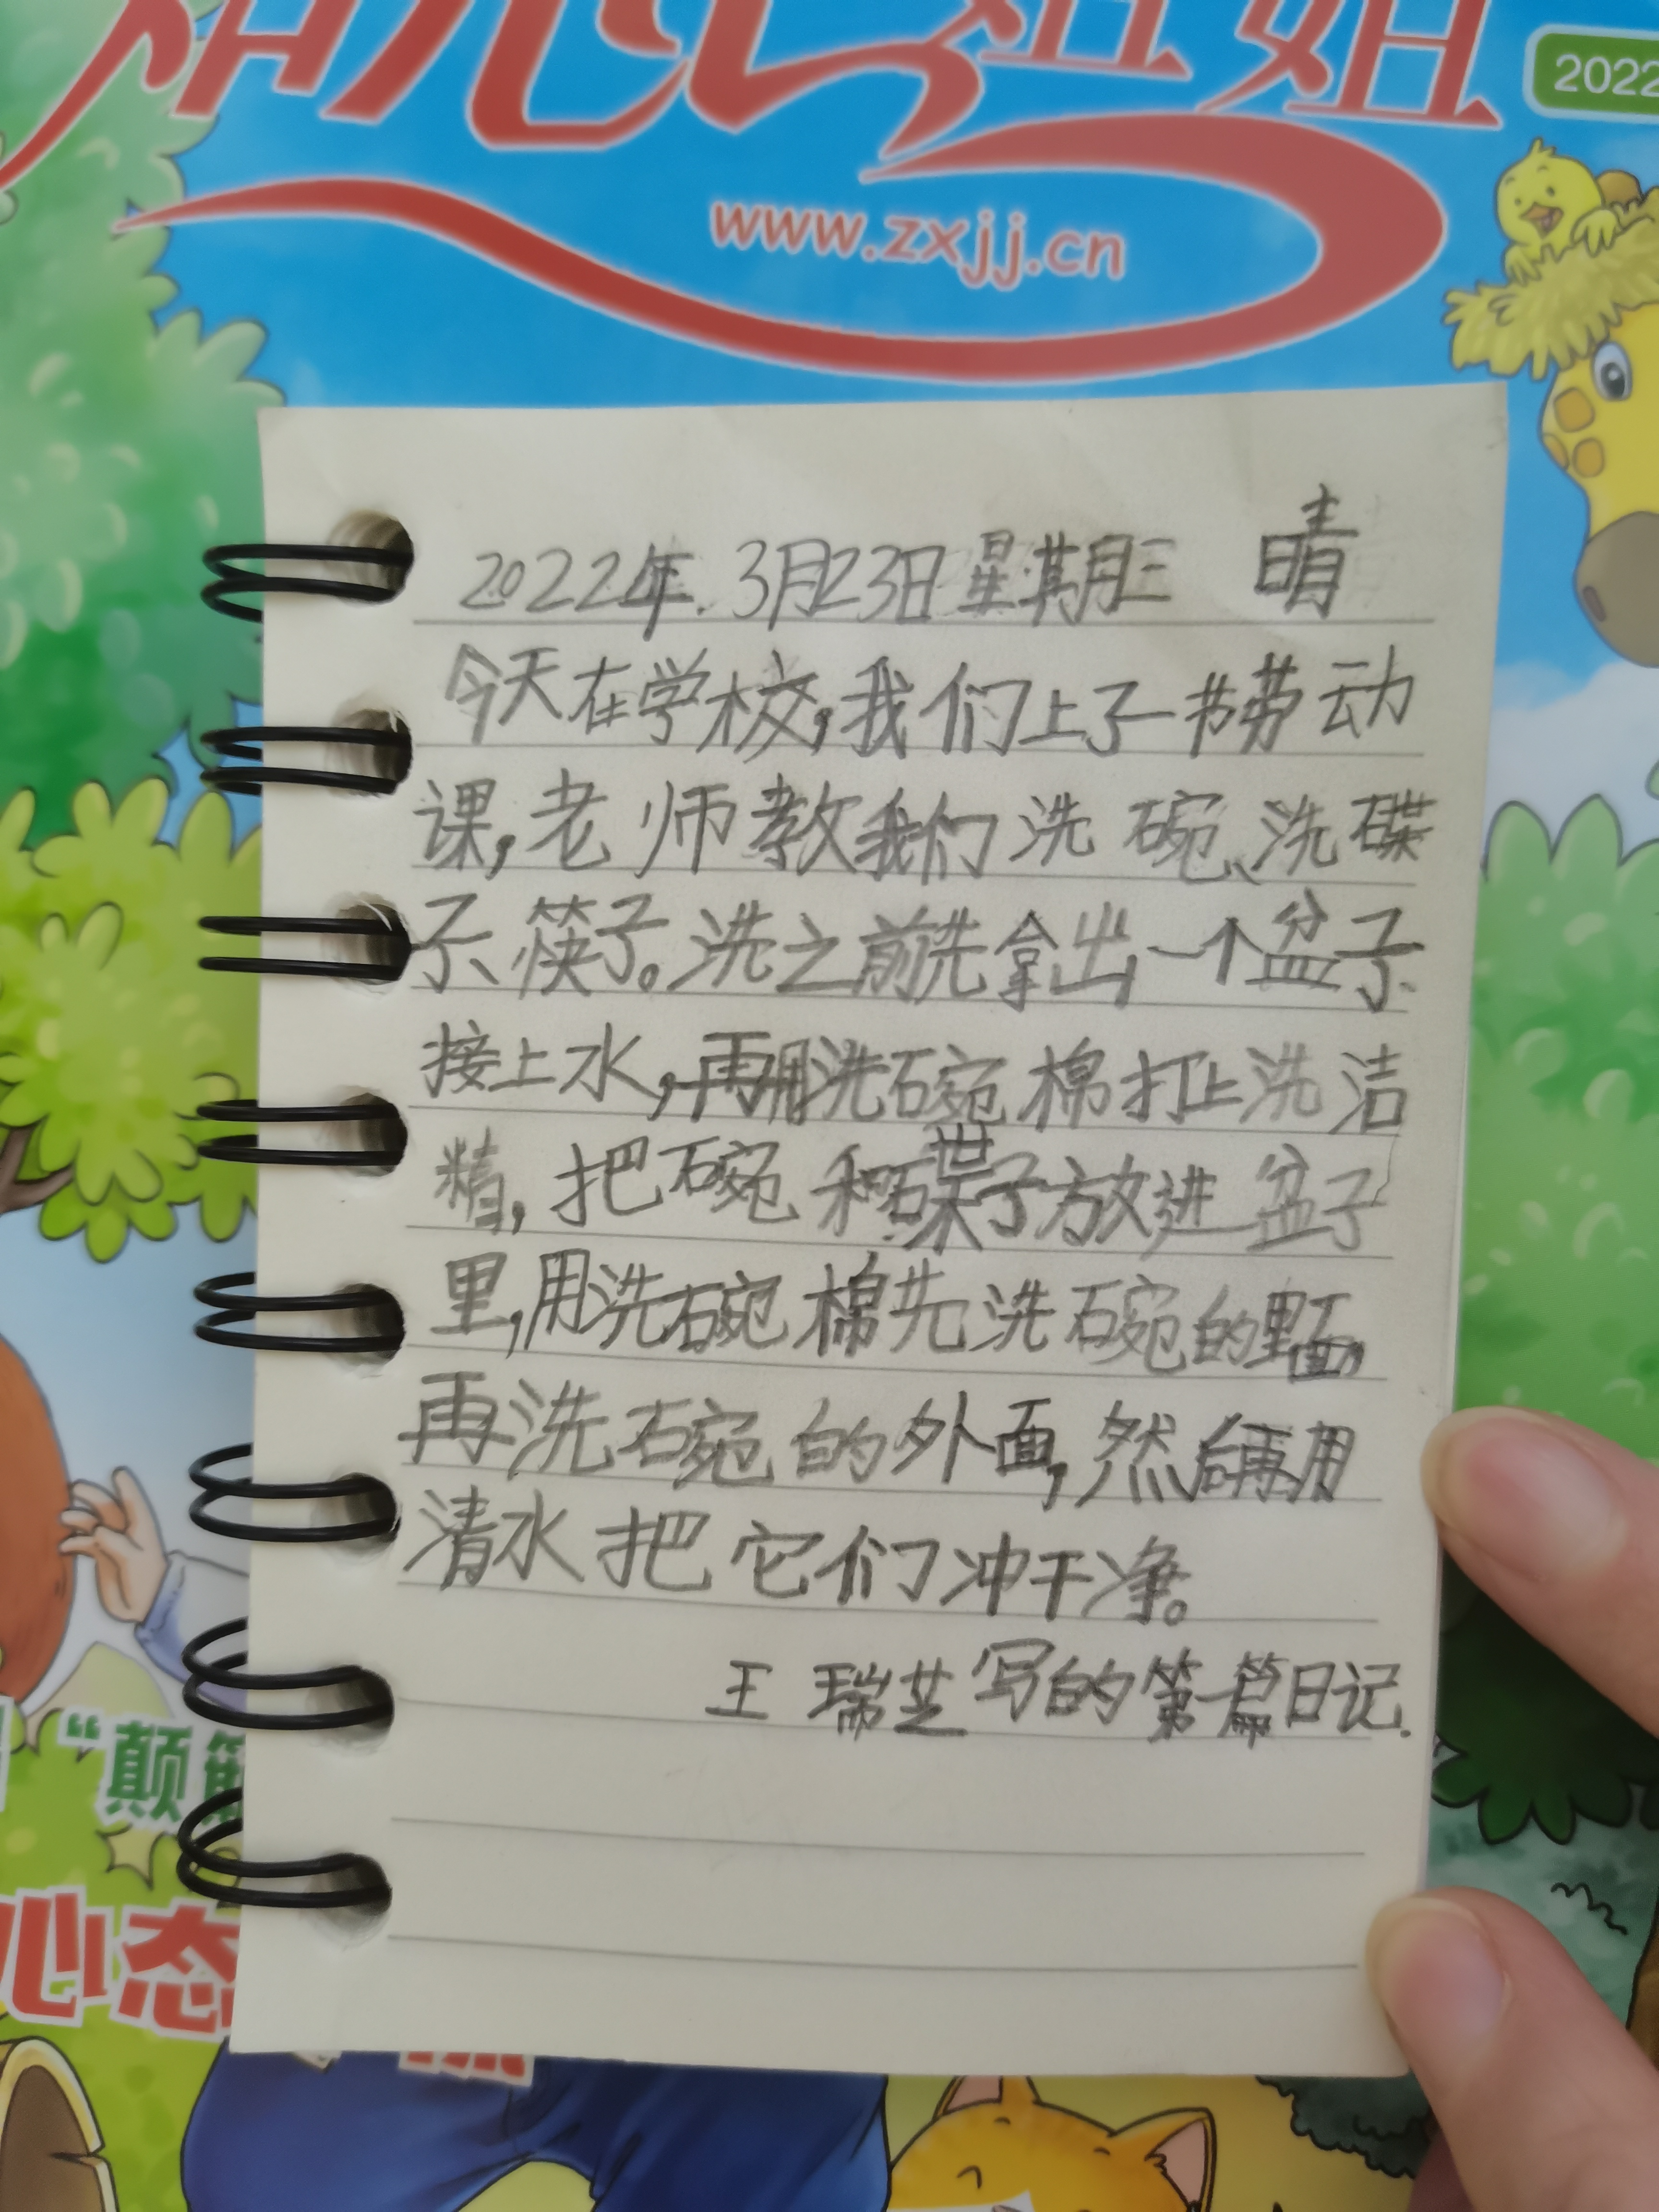 姐姐
2022
www.zxjj.cn
2022年.3月23日星期三 晴
今天在学校,我们上了一节劳动
课,老师教我们洗碗、洗碟
子、筷子。洗之前先拿出一个盆子
接上水,再用洗碗棉打上洗洁
精,把碗和碟子放进盆子
里,用洗碗棉先洗碗的里面,
再洗碗的外面,然后再用
清水把它们冲干净。
王瑞芝写的第一篇日记.
“颠
心态